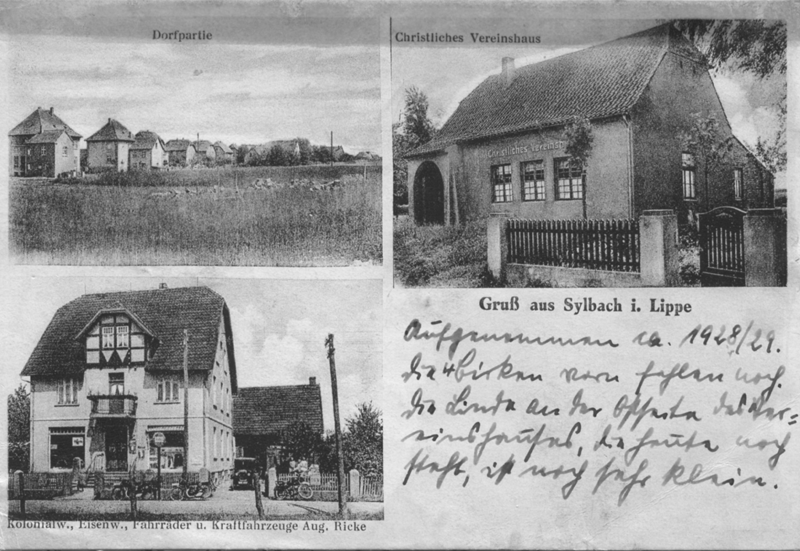 Dorfpartie
Christliches Vereinshaus
Christliches Vereinsh
Gruß aus Sylbach i. Lippe
Aufgenommen ca. 1928/29.
die 4 Birken vorn fehlen noch.
die Linde an der Ostseite des Ver=
einshauses, die heute noch
steht, ist noch sehr klein.
Kolonialw., Eisenw., Fahrräder u. Kraftfahrzeuge Aug. Ricke